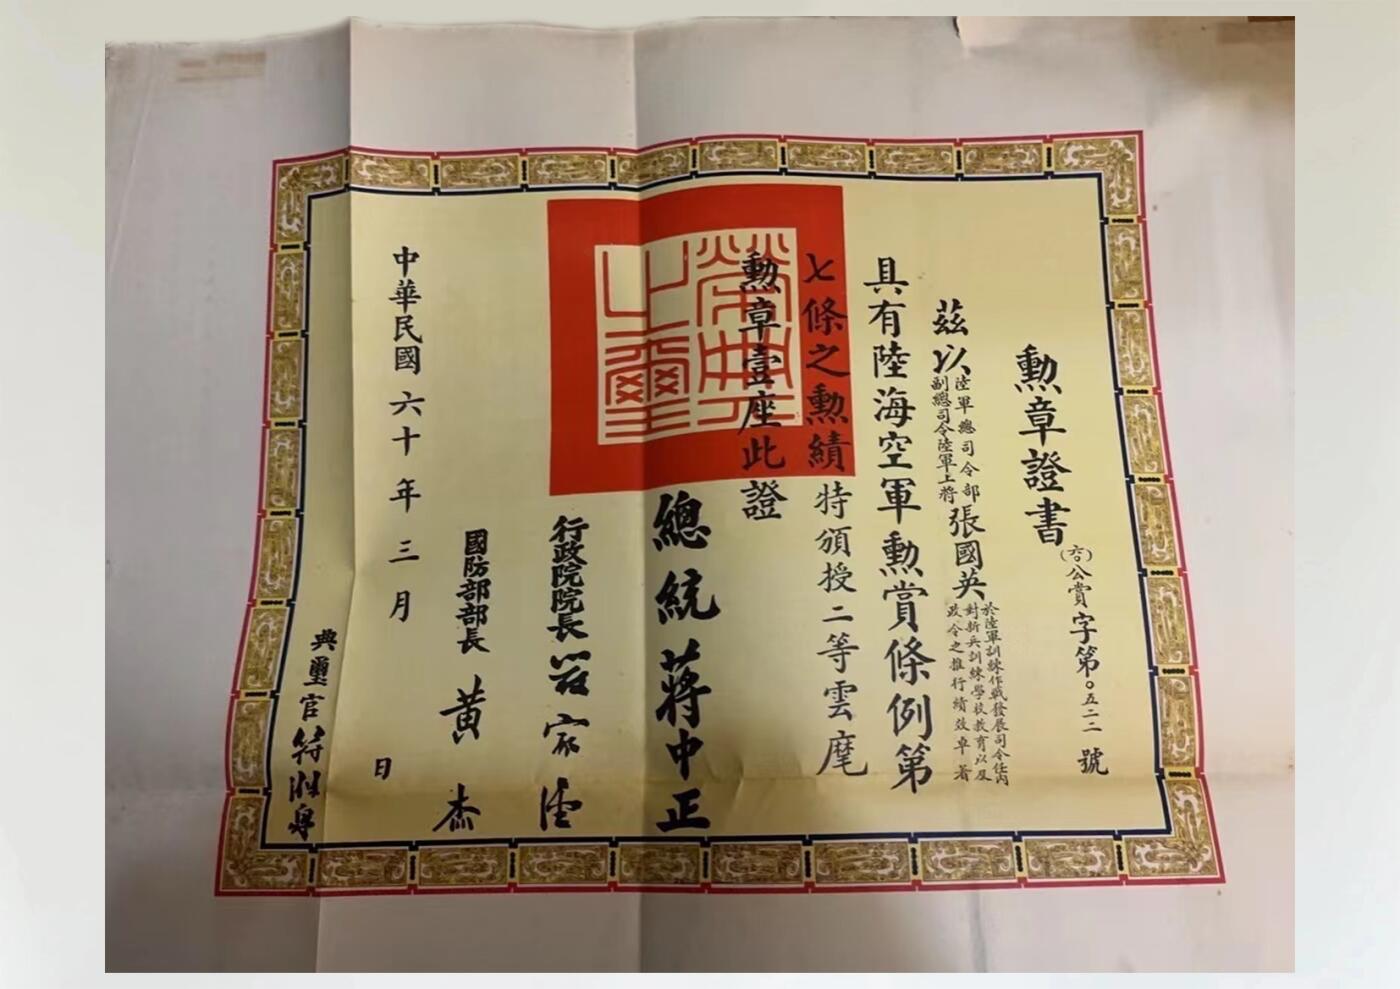 勲章證書
(六〇)公賞字第〇五二二號
茲以陸軍總司令部副總司令陸軍上將張國英於陸軍訓練作戰發展司令任內對新兵訓練學校教育以及政令之推行績效卓著
具有陸海空軍勲賞條例第
七條之勲績特頒授二等雲麾
勲章壹座此證
總統蔣中正
行政院院長嚴家淦
國防部部長黃杰
中華民國六十年三月日
典璽官
榮典之璽